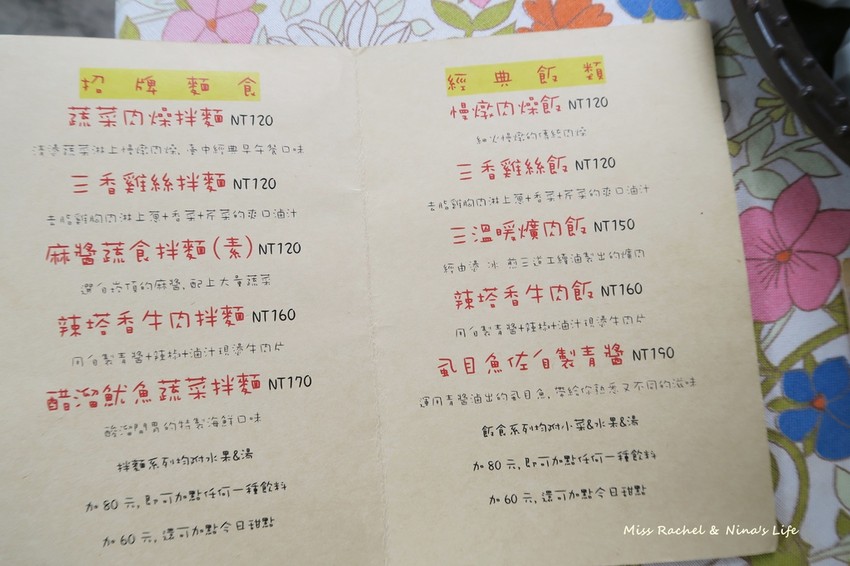 招牌麵食
蔬菜肉燥拌麵 NT120
清燙蔬菜淋上慢燉肉燥,臺中經典早午餐口味
三香雞絲拌麵 NT120
去脂雞胸肉淋上蔥+香菜+芹菜的爽口滷汁
麻醬蔬食拌麵(素) NT120
選自崁頂的麻醬,配上大量蔬菜
辣塔香牛肉拌麵 NT160
用自製青醬+辣椒+滷汁現燙牛肉片
醋溜魷魚蔬菜拌麵 NT170
酸溜開胃的特製海鮮口味
拌麵系列均附水果&湯
加 80 元,即可加點任何一種飲料
加 60 元,還可加點今日甜點
經典飯類
慢燉肉燥飯 NT120
細火慢燉的傳統肉燥
三香雞絲飯 NT120
去脂雞胸肉淋上蔥+香菜+芹菜的爽口滷汁
三溫暖爌肉飯 NT150
經由燙 冰 煎三道工續滷製出的爌肉
辣塔香牛肉飯 NT160
用自製青醬+辣椒+滷汁現燙牛肉片
虱目魚佐自製青醬 NT190
運用青醬滷出的虱目魚,帶給你熟悉又不同的滋味
飯食系列均附小菜&水果&湯
加 80 元,即可加點任何一種飲料
加 60 元,還可加點今日甜點
Miss Rachel & Nina's Life